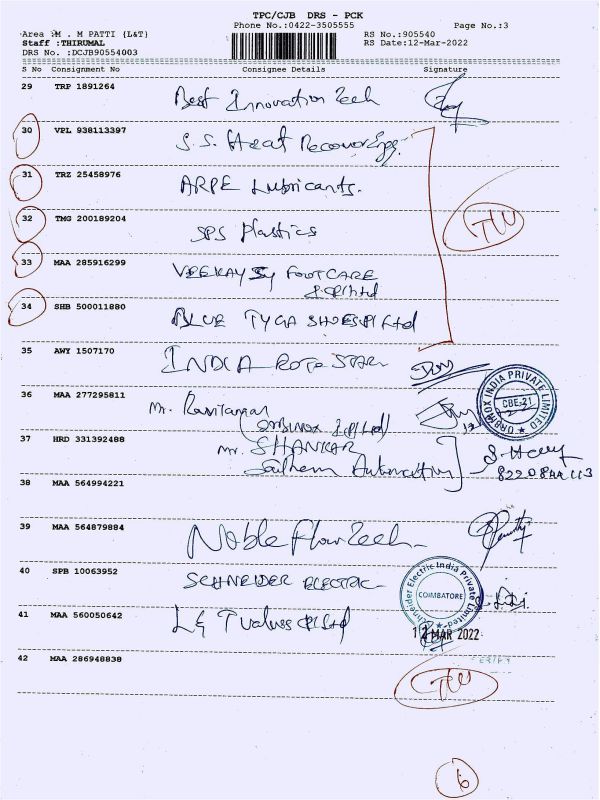 TPC/CJB DRS - PCK
Phone No.:0422-3505555 Page No.:3
Area :M . M PATTI {L&T} RS No.:905540
Staff :THIRUMAL RS Date:12-Mar-2022
DRS No. :DCJB90554003
S No Consignment No Consignee Details Signature
29 TRP 1891264 Best Innovation Tech
30 VPL 938113397 S.S. Heat Recoverings.
31 TRZ 25458976 ARPE Lubricants.
32 TMG 200189204 SPS Plastics
33 MAA 285916299 VEEKAYSY FOOTCARE
34 SHB 500011880 BLUE TYGA SHOES Pl Ltd
35 AWY 1507170 INDIA ROTO STAR
36 MAA 277295811 Mr.
URBINOX INDIA PRIVATE LIMITED
CBE-21
37 HRD 331392488 Mr. SHANKAR
Southern Automotive
38 MAA 564994221
39 MAA 564879884 Noble Flow Tech
40 SPB 10063952 SCHNEIDER ELECTRIC
Schneider Electric India Private Limited
COIMBATORE
41 MAA 560050642 L& T valves Pl Ltd
12 MAR 2022
42 MAA 286948838
6